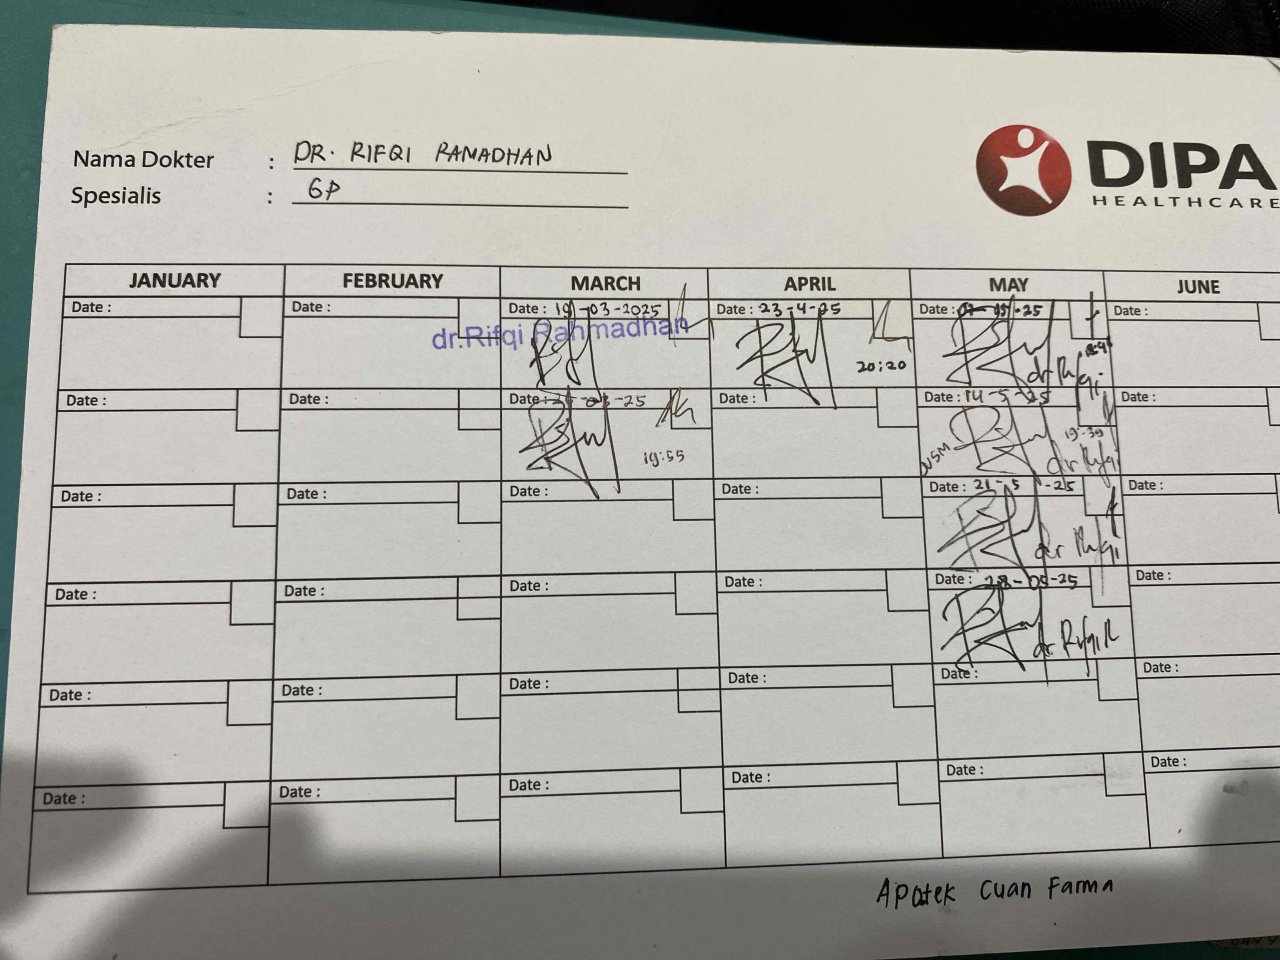 Nama Dokter : DR. RIFQI RAMADHAN
Spesialis : GP
DIPA
HEALTHCARE
JANUARY FEBRUARY MARCH APRIL MAY JUNE
Date : Date : Date : 19-03-2025 Date : 23-4-25 Date : -25 Date :
dr.Rifqi Rahmadhan
20:20
dr Rifqi
Date : Date : Date : -03-25 Date : Date : 14-5-25 Date :
19:55
19:30
dr Rifqi
Date : Date : Date : Date : Date : 21-5-25 Date :
dr Rifqi
Date : Date : Date : Date : Date : 28-05-25 Date :
dr. Rifqi R
Date : Date : Date : Date : Date : Date :
Date : Date : Date : Date : Date : Date :
Apotek Cuan Farma